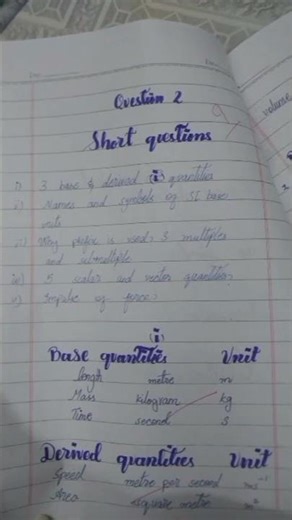 Question 2
9
volume
Short questions
i) 3 base & derived quantities
ii) Names and symbols of SI base
units
iii) Why prefix is used? 3 multiples
and submultiple
iv) 5 scalar and vector quantities
v) Impulse of force?
(i)
Base quantities Unit
length metre m
Mass kilogram kg
Time second s
Derived quantities Unit
Speed metre per second ms⁻¹
Area square metre m²